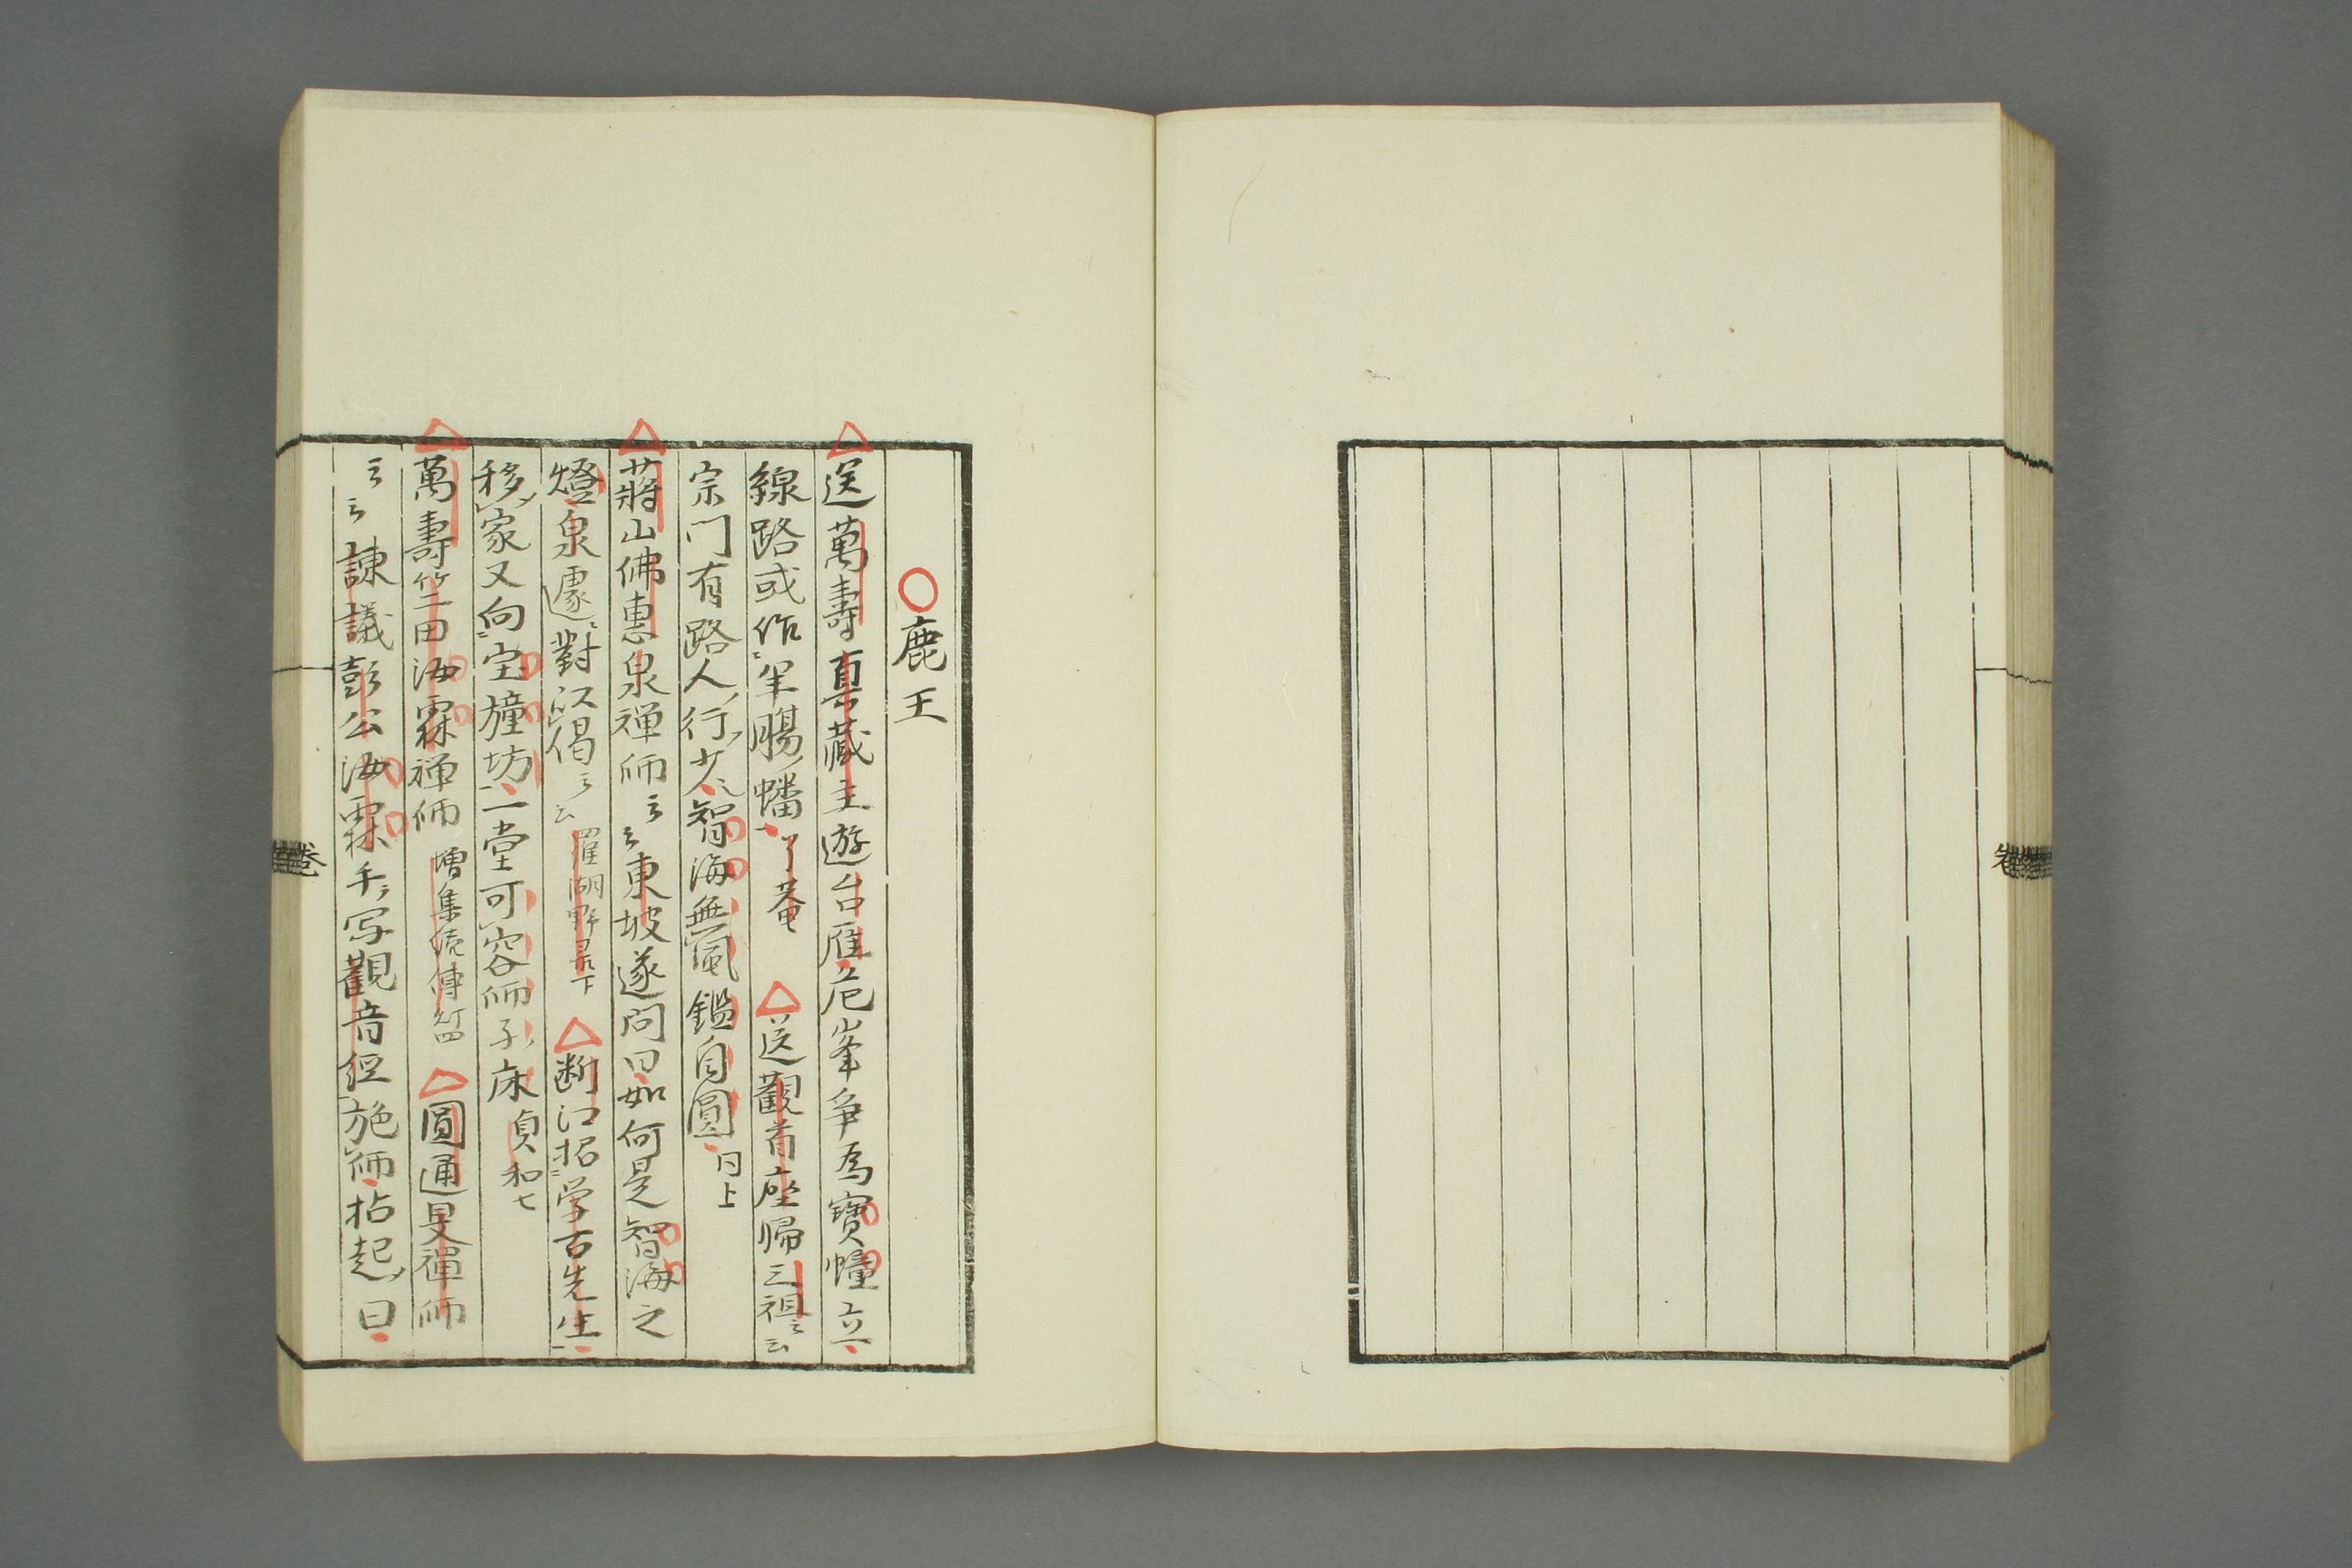 鹿王
送萬壽真藏主遊台雁危峯爭為寶幢立
線路或作羊腸蟠了菴 送觀首座歸三祖云云
宗门有路人行少智海無風鑑自圓同上
蔣山佛惠泉禅师云云東坡遂问曰如何是智海之
燈泉遽對以偈云云羅湖野录下 断江招学古先生
移家又向宝幢坊一堂可容师子床貞和七
萬壽竺田汝霖禅师增集续傳四 圓通旻禪师
云云諌議彭公汝霖手写觀音経施师拈起曰
卷
卷